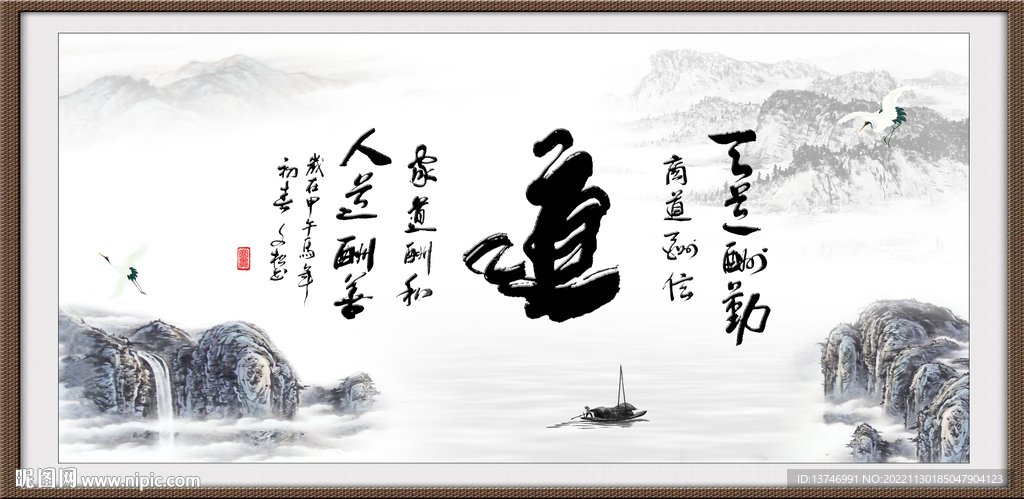 天道酬勤
商道酬信
道
家道酬和
人道酬善
歲在甲午馬年
初春
昵图网 www.nipic.com
ID:13746991 NO:20221130185047904123